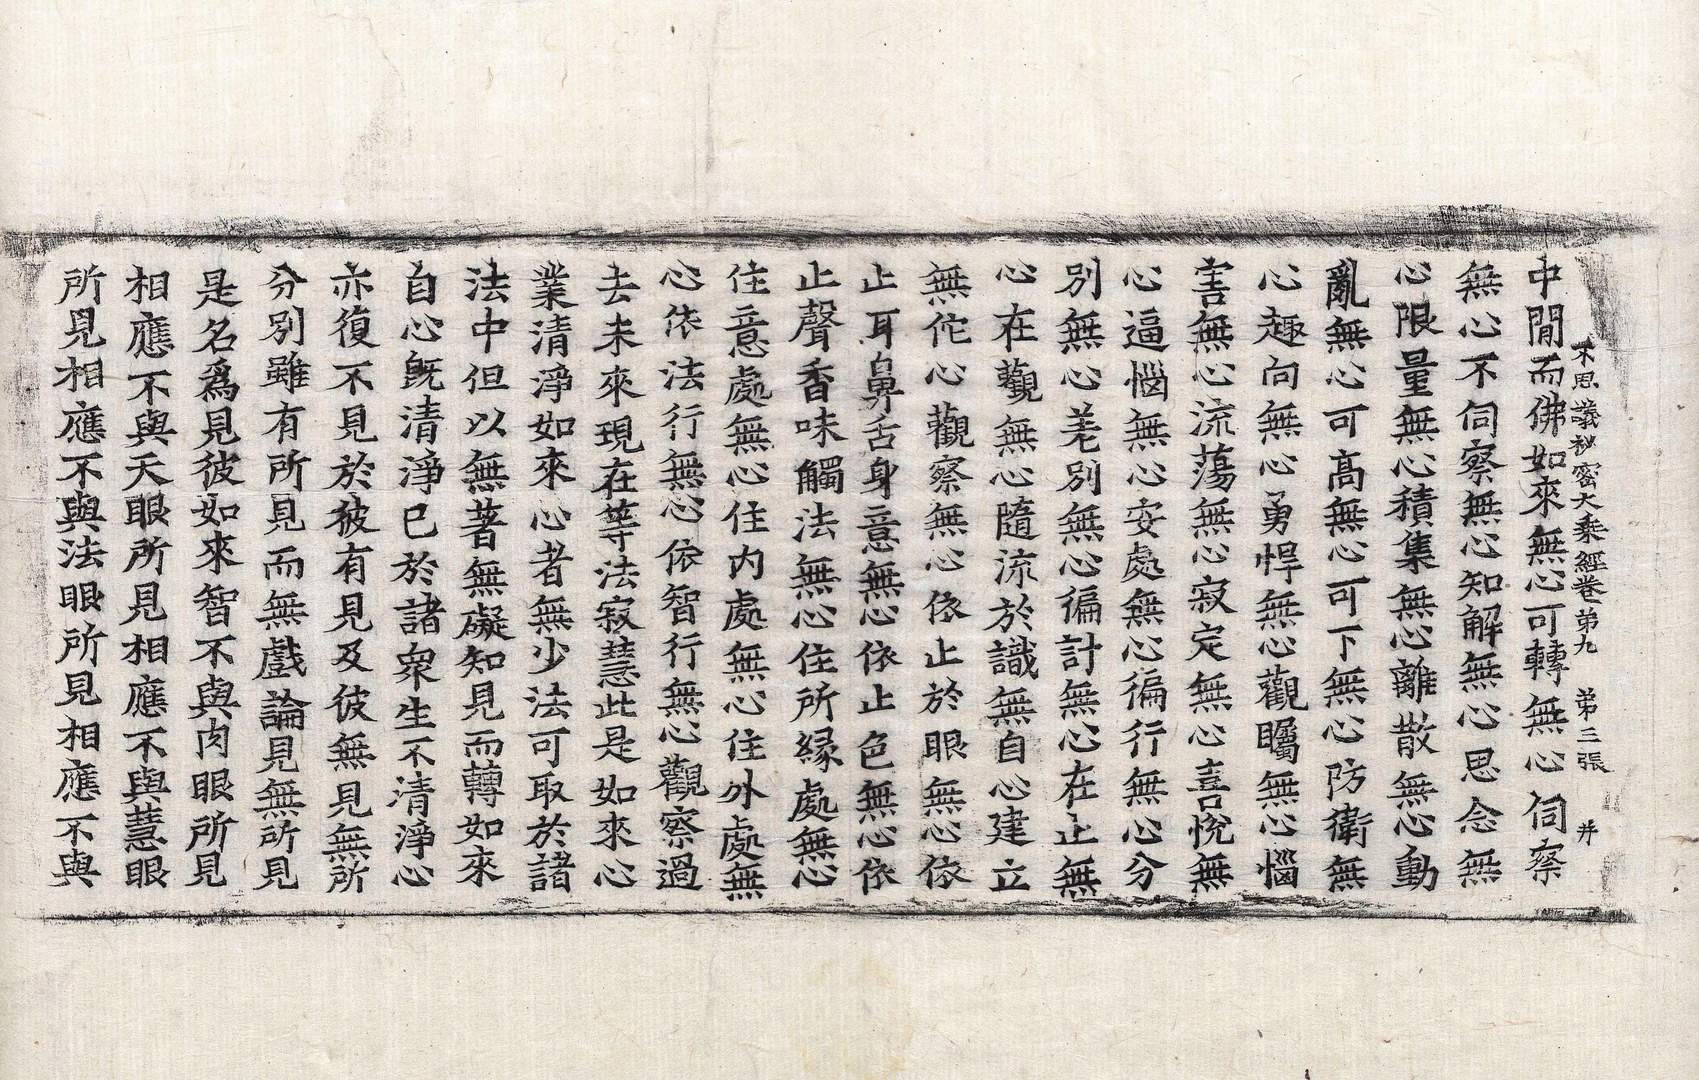 不思議祕密大乘經卷第九　第三張　井
中閒而佛如來無心可轉無心伺察
無心不伺察無心知解無心思念無
心限量無心積集無心離散無心動
亂無心可高無心可下無心防衛無
心趣向無心勇悍無心觀矚無心惱
害無心流蕩無心寂定無心喜悅無
心逼惱無心安處無心徧行無心分
別無心差別無心徧計無心在止無
心在觀無心隨流於識無自心建立
無佗心觀察無心依止於眼無心依
止耳鼻舌身意無心依止色無心依
止聲香味觸法無心住所緣處無心
住意處無心住內處無心住外處無
心依法行無心依智行無心觀察過
去未來現在等法寂慧此是如來心
業清淨如來心者無少法可取於諸
法中但以無著無礙知見而轉如來
自心旣清淨已於諸衆生不清淨心
亦復不見於彼有見及彼無見無所
分別雖有所見而無戲論見無所見
是名爲見彼如來智不與肉眼所見
相應不與天眼所見相應不與慧眼
所見相應不與法眼所見相應不與